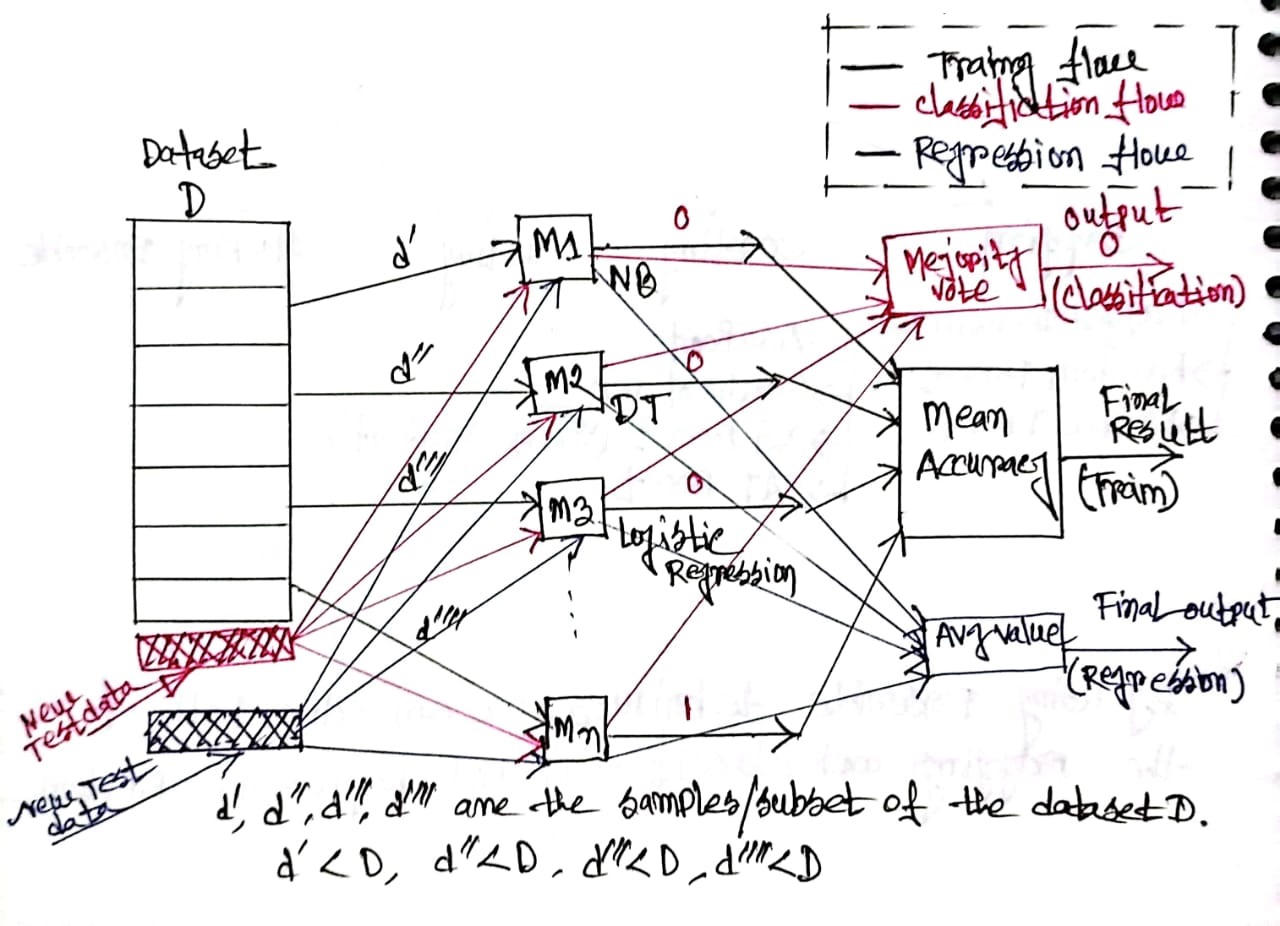 Traing flow
classification flow
Regression flow
Dataset
D
d'
d''
d'''
d''''
M1
NB
M2
DT
M3
Logistic
Regression
Mn
0
0
0
1
Mejority
vote
output
0
(classification)
Mean
Accuracy
Final
Result
(Train)
Avg value
Final output
(Regression)
New
Test data
New Test
data
d', d'', d''', d'''' are the samples/subset of the dataset D.
d' < D, d'' < D, d''' < D, d'''' < D